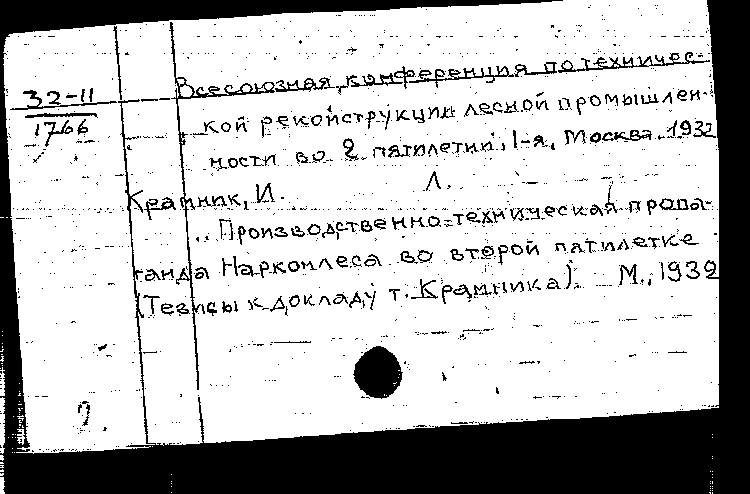 32-11
1766
Всесоюзная конференция по техничес-
кой реконструкции лесной промышлен-
ности во 2 пятилетии, I-я, Москва, 1932
Крамник, И. Л.
Производственно-техническая пропа-
ганда Наркомлеса во второй пятилетке
(Тезисы к докладу т. Крамника). М., 1932